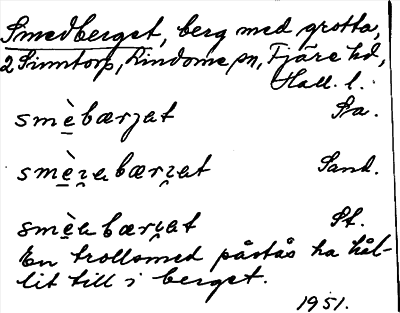 Smedberget, berg med grotta,
2 Sinntorp, Lindome sn, Fjäre hd,
Hall. l.
smèbærjat Sta.
smèɪabærɪat Sand.
smèabærɪat St.
En trollsmed påstås ha hål-
lit till i berget.
1951.